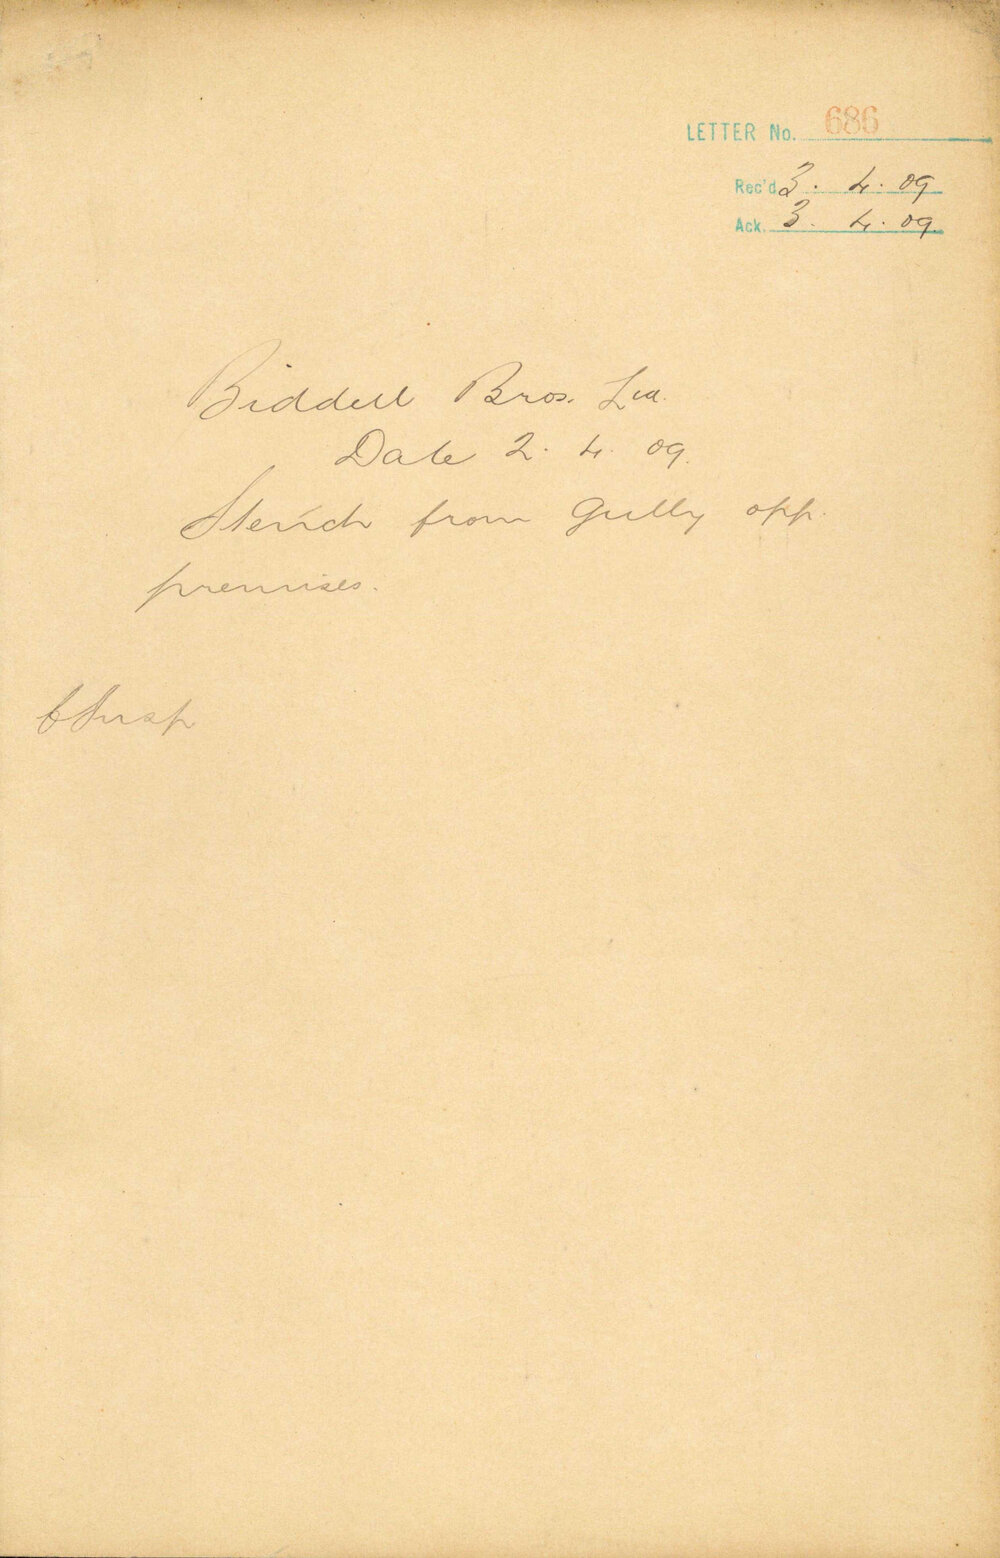 LETTER No. 686
Rec'd 3. 4. 09
Ack. 3. 4. 09.
Biddell Bros. Ltd.
Date 2. 4. 09.
Stench from gully opp.
premises.
C Insp